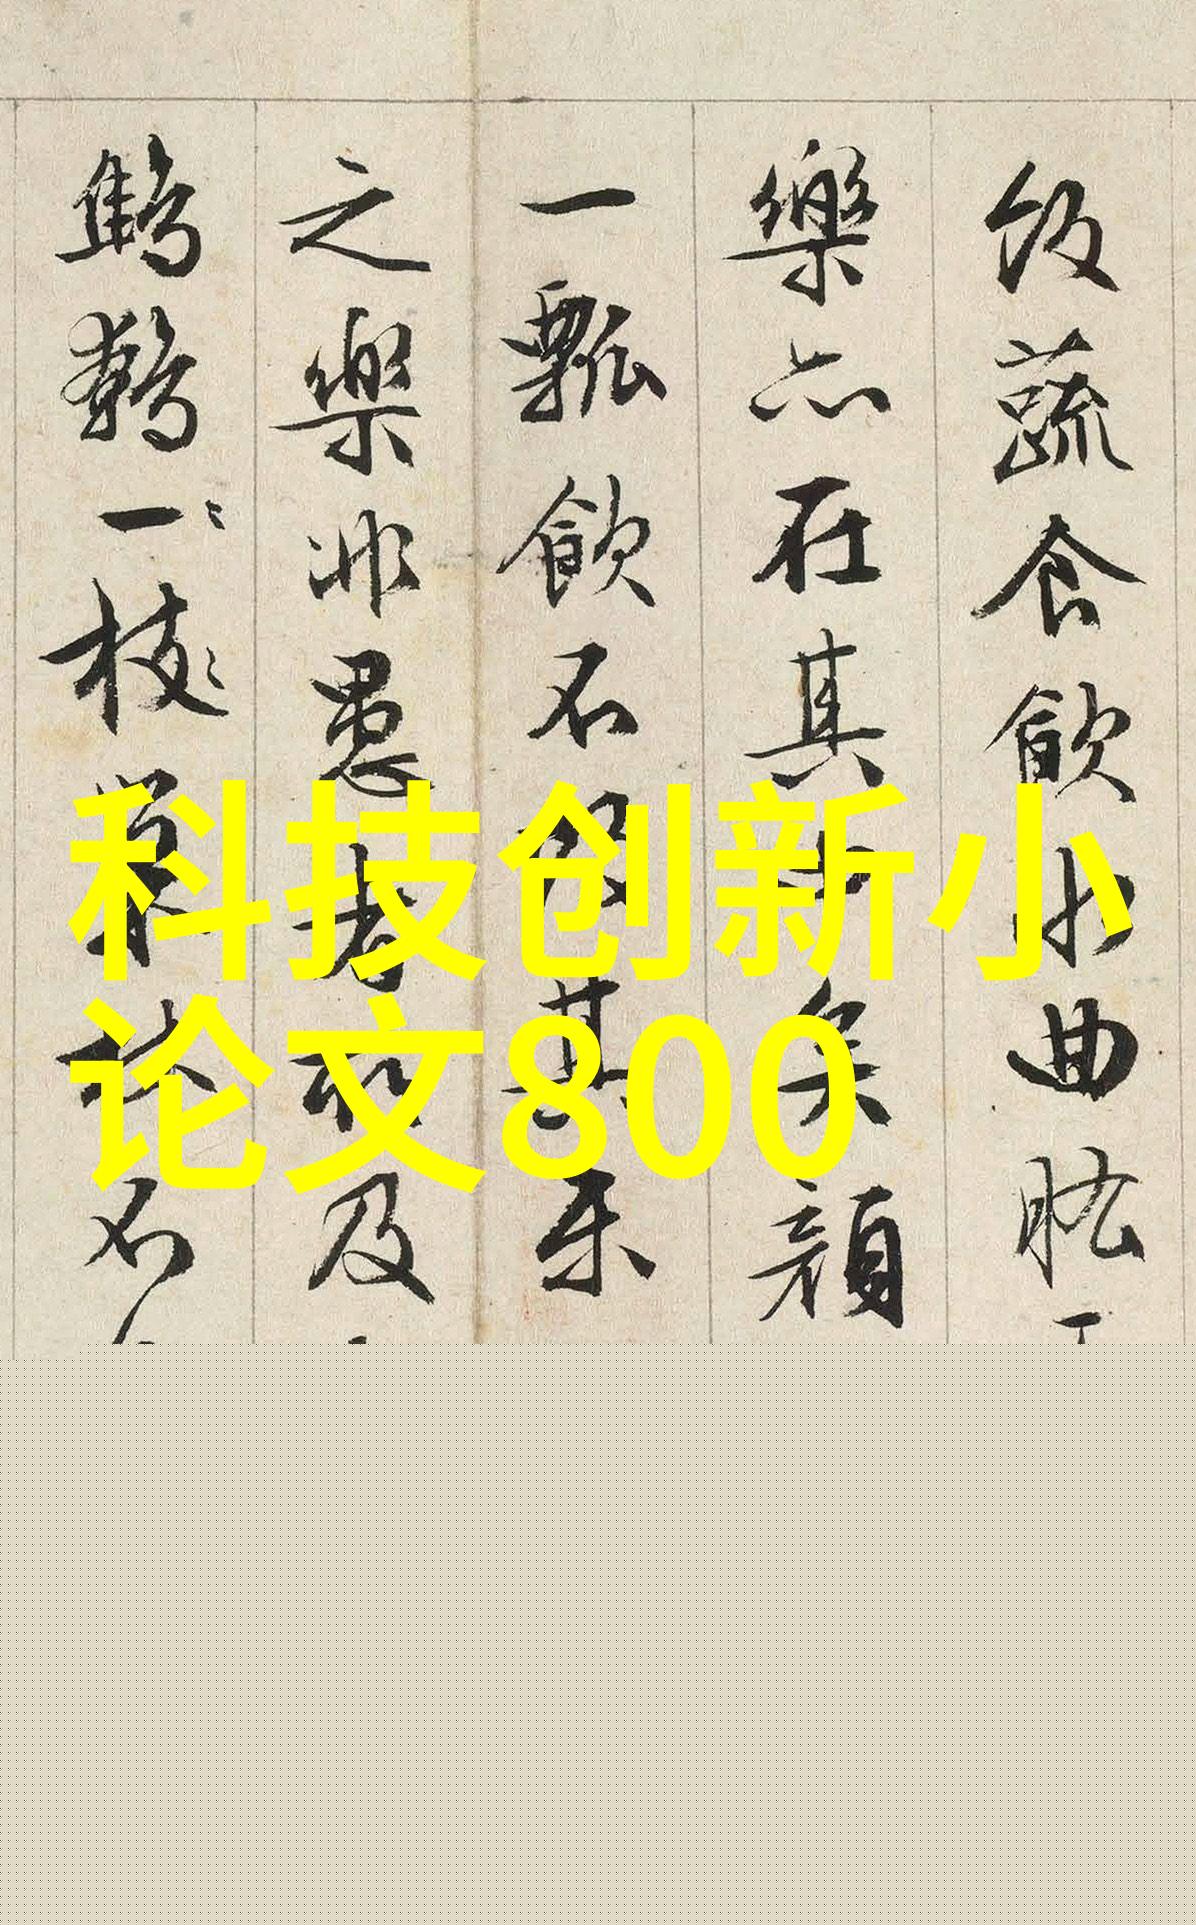 飯蔬食飲水曲肱
樂亦在其中矣顏
一瓢飲不改其樂
之樂非愚者所及
鷦鷯一枝
不
科技创新小
论文800